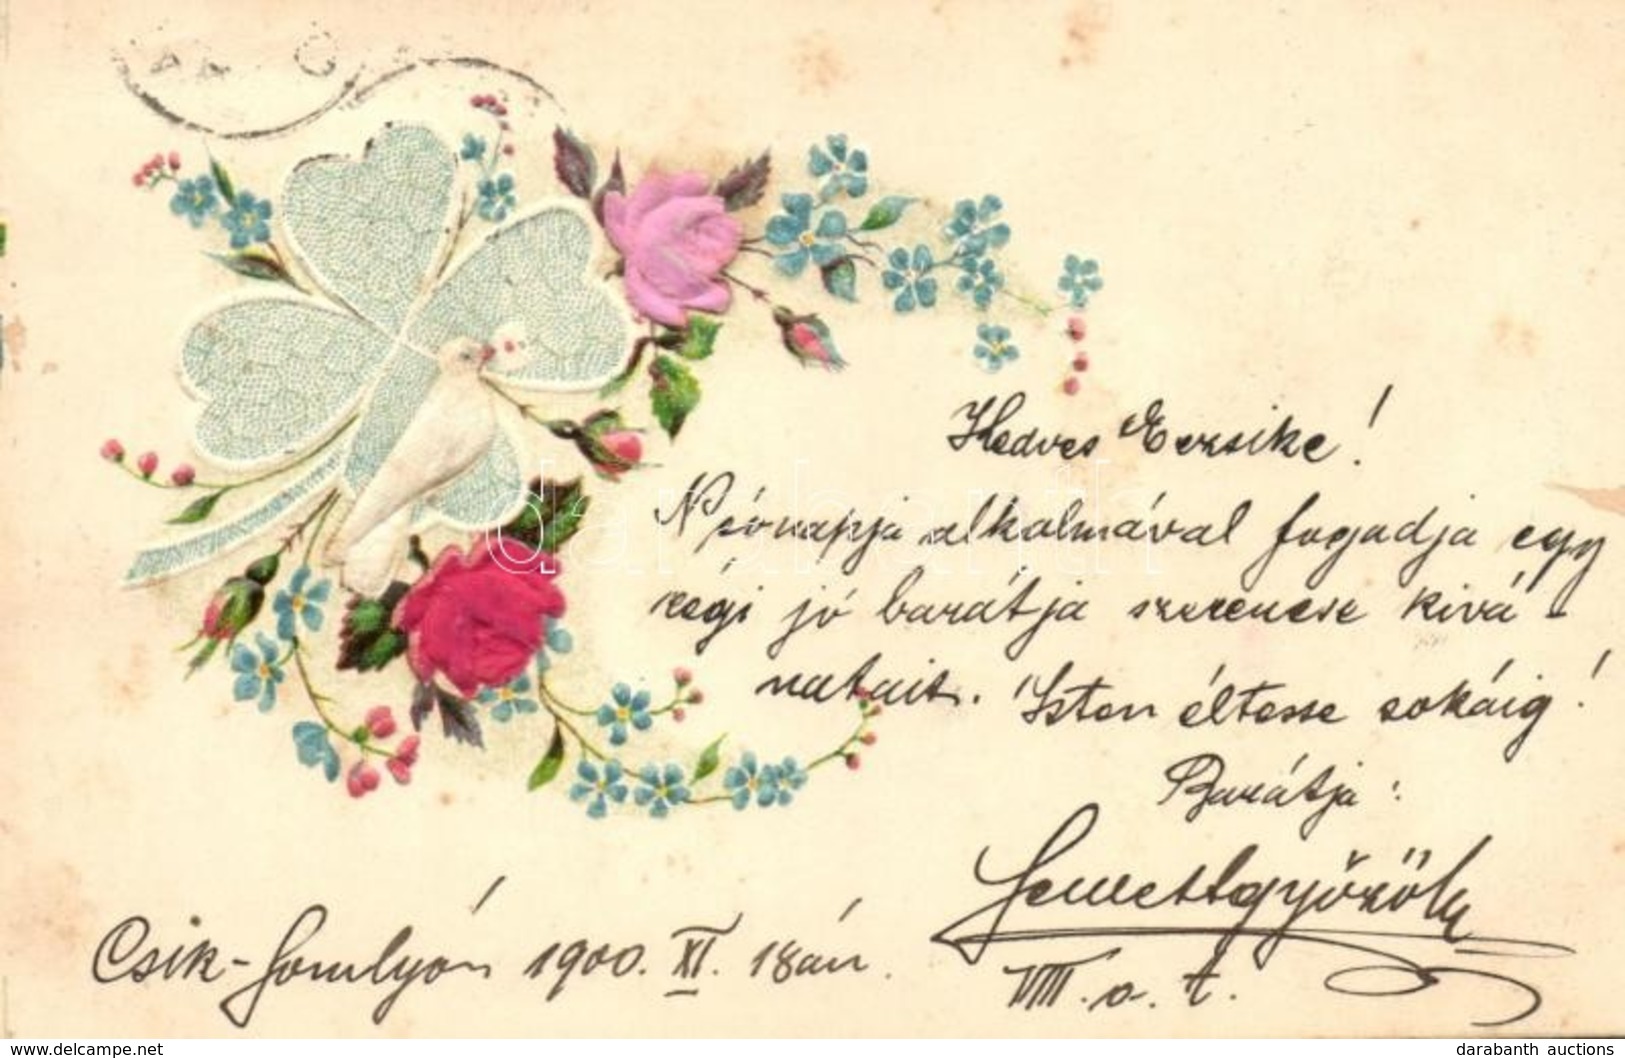 Hedves Erzsike!
Nésónapja alkalmával fogadja egy
régi jó barátja szerencse kivá-
natait. Isten éltesse sokáig!
Barátja:
VIII. o. t.
Csik-Somlyón 1900. XI. 18án.
darabanth
www.delcampe.net
darabanth auctions